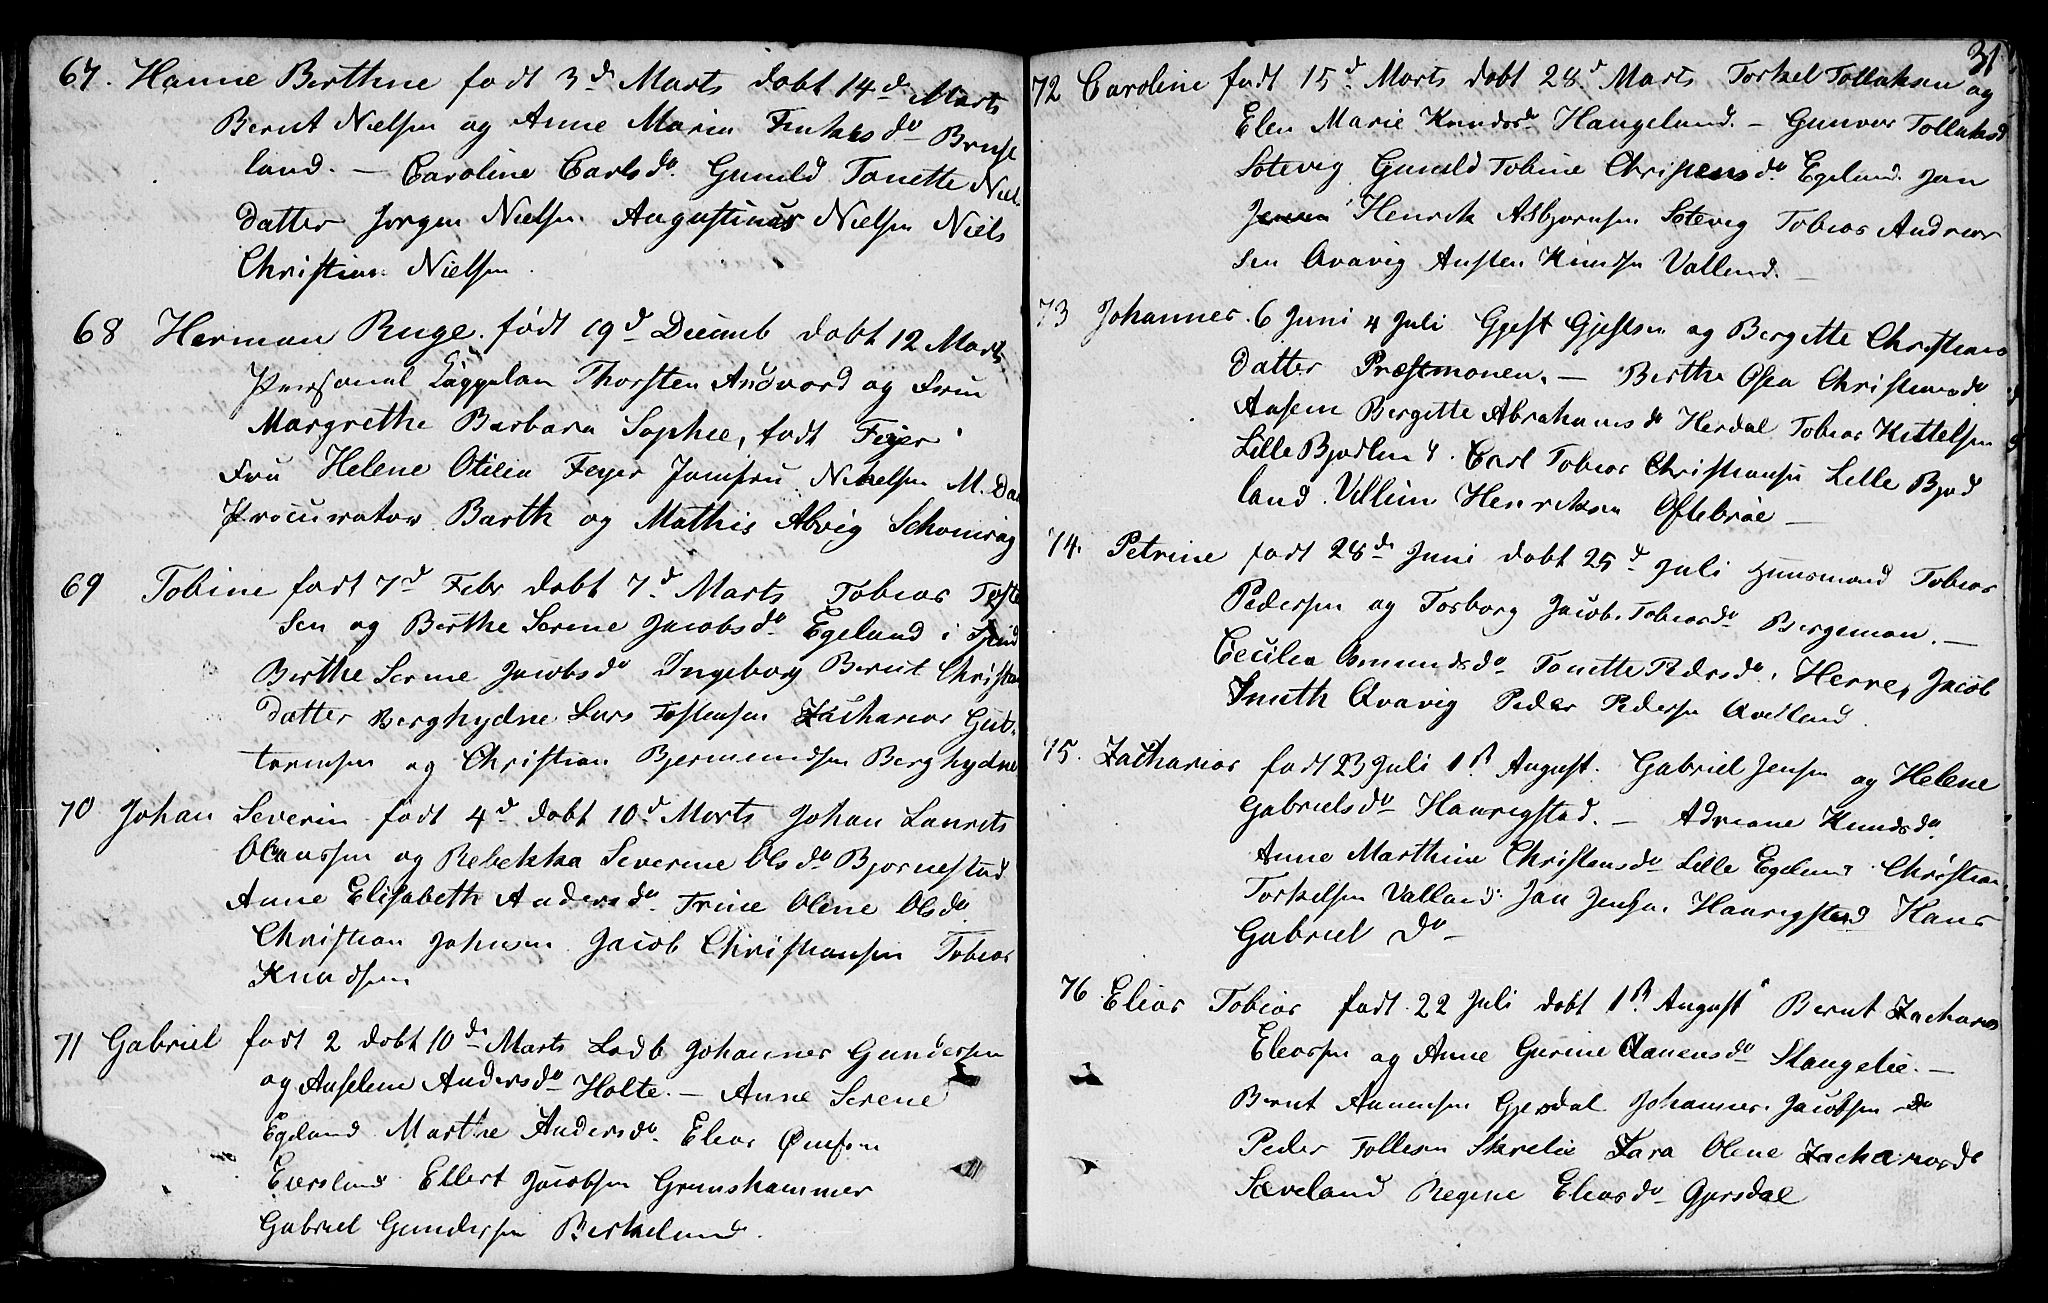 67. Hanne Berthine født 3d Marts døbt 14d Marts
Bernt Nielsen og Anne Maria do Bruse
land. — Caroline Carlsdr. Gunild Tonette Niel
datter Jørgen Nielsen Augustinus Nielsen Niels
Christian Nielsen.
68 Herman Ruge født 19d Decemb døbt 12 Marts
Personal Cappelan Thorsten Audvard og Frue
Margrethe Barbara Sophie, født Fejer
Fru Helene Otilia Fejer Jomfru Nielsen M.
Procurator Barth og Mathis Abvig
69 Tobine født 7d Febr døbt 7d Marts Tobias
sen og Berthe Serine Jacobsdr. Egeland i
Berthe Serine Jacobsdr Ingeborg Bernt Christ
datter Berghydne Lars Tostensen Zacharias Gut-
tormsen og Christian Berghydne
70 Johan Severin født 4d døbt 10d Marts Johan Laurits
Olaussen og Rebekka Severine Olsdr Bjørnestad
Anne Elisabeth Andersdr. Trine Oline Olsdr
Christian Johnsen Jacob Christiansen Tobias
Knudsen
71 Gabriel født 2 døbt 10d Marts Johannes Gundersen
og Anseline Andersdr Holte. — Anne Serene
Egeland Marthe Andersdr. Elias
Ellert Jacobsen Grimshammer
Gabriel Gundersen Birkeland.
31
72 Caroline født 15d Marts døbt 28d Marts Torkel Tollaksen og
Elen Marie Knudsdr Haugeland. — Gunvor Tollaksd
Sotevig Gunild Tobine Christensdr. Egeland. Jan
Henrik Asbjørnsen Sotevig Tobias Andreas
sen Qvavig Austen Knudsen Valland. —
73 Johannes. 6 Juni 4 Juli Gjest Gjestsen og Bergitte Christians
datter Præstmonen. — Berthe Osea Christensdr
Bergitte Abrahamsdr Herdal Tobias Kittelsen
Lille Carl Tobias Christiansen Lille Bjød
land. Villum Henriksen Oftebrøe —
74. Petrine født 28d Juni døbt 25d Juli Huusmand Tobias
Pedersen og Torborg Jacob. Tobiasdr Bergemon. —
Cecilia Osmundsdr Tonette Pedersdr. Herre, Jacob
Smith Qvavig Peder Pedersen Qvelland.
75. Zacharias født 23 Juli 1st August. Gabriel Jensen og Helene
Gabrielsdr Haarigstad. — Adriane Knudsdr.
Anne Marthine Christensdr Lille Egeland Christian
Torkelsen Valland. Jan Jensen Haarigstad Hans
Gabriel do
76. Elias Tobias født 22 Juli døbt 1st August Bernt Zacharias
Eliassen og Anne Gurine Aanensdr Stangelie. —
Bernt Aanensen Gjersdal Johannes Jacobsen do
Peder Tollesen Skrelie Sara Olene Zachariasdr
Sæveland Regine Eliasdr Gjersdal